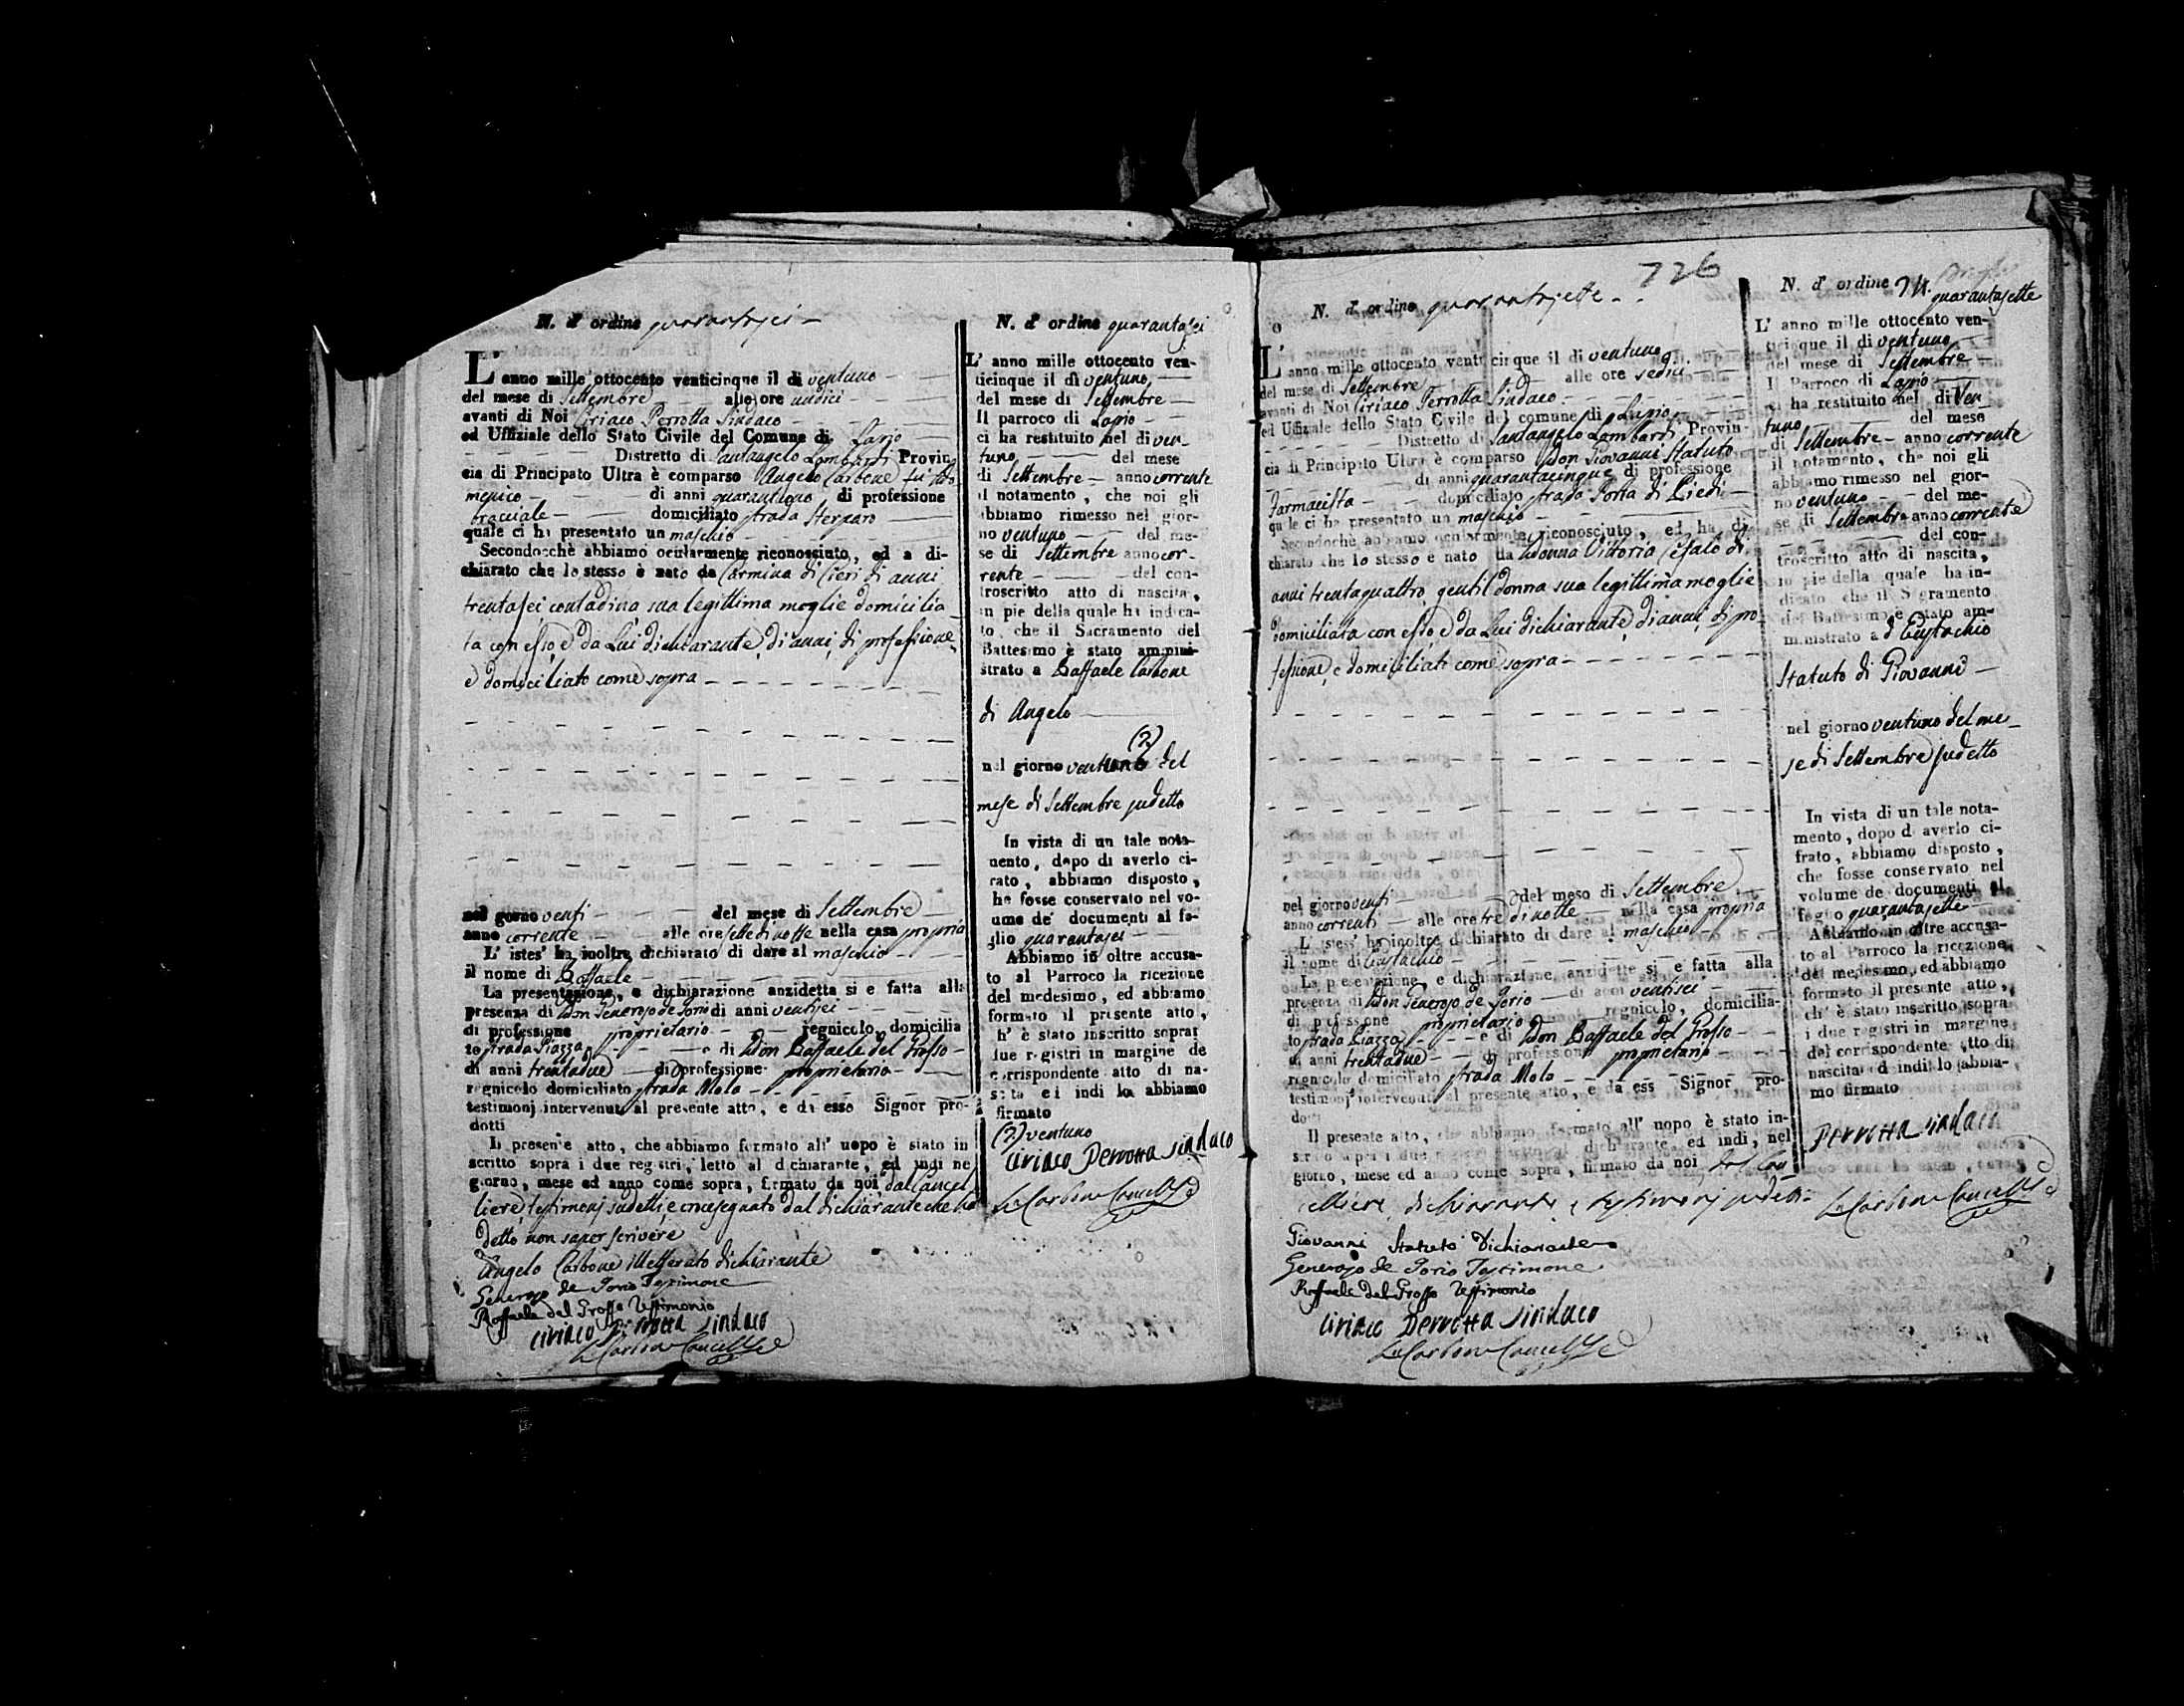 N. d' ordine quarantasei
L' anno mille ottocento venticinque il di ventuno
del mese di Settembre alle ore undici
avanti di Noi Ciriaco Perrotta Sindaco
ed Uffiziale dello Stato Civile del Comune di Lapio
Distretto di Santangelo Lombardi Provin
cia di Principato Ultra è comparso Angelo Carbone fu Do
menico di anni quarantuno di professione
bracciale domiciliato strada Sterparo
quale ci ha presentato un maschio
Secondocchè abbiamo ocularmente riconosciuto, ed a di-
chiarato che lo stesso è nato da Carmina di Cieri di anni
trentasei contadina sua legittima moglie domicilia
ta con esso e da Lui dichiarante, di anni, di professione,
e domiciliato come sopra
nel gorno venti del mese di Settembre
anno corrente alle ore sette di notte nella casa propria
L' istes' ha inoltre dichiarato di dare al maschio
il nome di Raffaele
La presentazione, e dichiarazione anzidetta si e fatta alla
presenza di Don Generoso de Iorio di anni ventisei
di professione proprietario regnicolo, domicilia
to strada Piazza e di Don Raffaele del Grosso
di anni trentadue di professione proprietario
regnicolo domiciliato strada Mola
testimonj intervenuti al presente atto, e di esso Signor pro-
dotti
Il presente atto, che abbiamo formato all' uopo è stato in
scritto sopra i due registri, letto al dichiarante, ed indi ne
giorno, mese ed anno come sopra, firmato da noi dal Cancel
liere, testimonj sudetti, e crocesegnato dal dichiarante che ha
detto non saper scrivere
Angelo Carbone illetterato dichiarante
Generoso de Iorio Testimone
Raffaele del Grosso Testimonio
Ciriaco Perrotta Sindaco
Carbone Cancelliere
N. d' ordine quarantasei
L' anno mille ottocento ven-
ticinque il dì ventuno
del mese di Settembre
Il parroco di Lapio
ci ha restituito nel di ven
tuno del mese
di Settembre anno corrente
il notamento, che noi gli
abbiamo rimesso nel gior-
no ventuno del me-
se di Settembre anno cor-
rente del con-
troscritto atto di nascita,
in pie della quale ha indica-
to, che il Sacramento del
Battesimo è stato ammini-
strato a Raffaele Carbone
di Angelo
(?)
nel giorno del
mese di Settembre sudetto
In vista di un tale nota-
mento, dopo di averlo ci-
rato, abbiamo disposto,
he fosse conservato nel vo-
ume de' documenti al fo-
glio quarantasei
Abbiamo in oltre accusa-
to al Parroco la ricezione
del medesimo, ed abbiamo
formato il presente atto,
h' è stato inscritto sopra
due registri in margine de
corrispondente atto di na-
scita ed indi lo abbiamo
firmato
(?) ventuno
Ciriaco Perrotta Sindaco
Carbone Cancelliere
726
N. d' ordine quarantasette
L' anno mille ottocento venticinque il di ventuno
del mese di Settembre alle ore sedici
avanti di Noi Ciriaco Perrotta Sindaco
ed Uffiziale dello Stato Civile del comune di Lapio
Distretto di Santangelo Lombardi Provin-
cia di Principato Ultra è comparso Don Giovanni Statuto
di anni quarantacinque di professione
Farmacista domiciliato strada Porta di Piedi
quale ci ha presentato un maschio
Secondochè abbiamo ocularmente riconosciuto, ed ha di
chiarato che lo stesso è nato da Donna Vittoria Cefalo di
anni trentaquattro gentil donna sua legittima moglie
domiciliata con esso e da Lui dichiarante, di anni, di pro
fessione, e domiciliato come sopra
nel giorno venti del mese di Settembre
anno corrente alle ore tre di notte nella casa propria
L' istess' ha inoltre dichiarato di dare al maschio
il nome di Eustachio
La presentazione, e dichiarazione anzidette si e fatta alla
presenza di Don Generoso de Iorio di anni ventisei
di professione proprietario regnicolo, domicilia-
to strada Piazza e di Don Raffaele del Grosso
di anni trentadue di professione proprietario
regnicolo domiciliato strada Mola
testimonj intervenuti al presente atto, e da ess Signor pro-
dotti
Il presente atto, che abbiamo formato all' uopo è stato in-
scritto sopra i due registri dichiarante ed indi, nel
giorno, mese ed anno come sopra, firmato da noi dal Can
celliere, dichiarante e testimonj sudetti
Giovanni Statuto Dichiarante
Generoso de Iorio Testimone
Raffaele del Grosso Testimonio
Ciriaco Perrotta Sindaco
Carbone Cancelliere
N. d' ordine 74.
quarantasette
L' anno mille ottocento ven-
ticinque il di ventuno
del mese di Settembre
Il Parroco di Lapio
ci ha restituito nel di ven
tuno del mese
di Settembre anno corrente
il notamento, che noi gli
abbiamo rimesso nel gior-
no ventuno del me-
se di Settembre anno corrente
del con-
troscritto atto di nascita,
in pie della quale ha in-
dicato che il Sagramento
del Battesimo è stato am-
ministrato a d Eustachio
Statuto di Giovanni
nel giorno ventuno del me
se di Settembre sudetto
In vista di un tale nota-
mento, dopo d averlo ci-
frato, abbiamo disposto,
che fosse conservato nel
volume de documenti al
foglio quarantasette
Abbiamo in oltre accusa-
to al Parroco la ricezione
del medesimo, ed abbiamo
formato il presente atto,
ch' è stato inscritto sopra
i due registri in margine
del corrispondente atto di
nascita ed indi lo abbia-
mo firmato
Perrotta Sindaco
Carbone Cancelliere